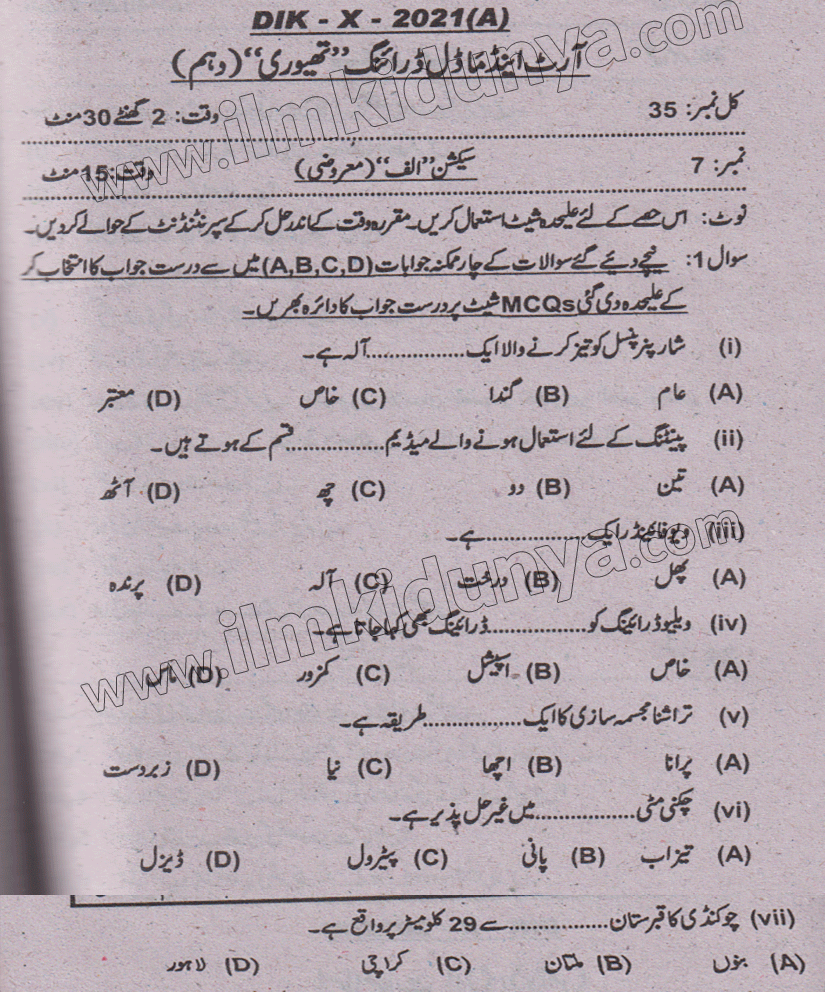 DIK - X - 2021(A)
آرٹ اینڈ ماڈل ڈرائنگ "تھیوری" (دہم)
کل نمبر: 35 وقت: 2 گھنٹے 30 منٹ
نمبر: 7 سیکشن "الف" (معروضی) وقت: 15 منٹ
نوٹ: اس حصے کے لئے علیحدہ شیٹ استعمال کریں۔ مقررہ وقت کے اندر حل کر کے سپرنٹنڈنٹ کے حوالے کر دیں۔
سوال 1: نیچے دیئے گئے سوالات کے چار ممکنہ جوابات (A,B,C,D) میں سے درست جواب کا انتخاب کر
کے علیحدہ دی گئی MCQs شیٹ پر درست جواب کا دائرہ بھریں۔
(i) شارپنر پنسل کو تیز کرنے والا ایک ................ آلہ ہے۔
(A) عام (B) گندا (C) خاص (D) معتبر
(ii) پینٹنگ کے لئے استعمال ہونے والے میڈیم ................ قسم کے ہوتے ہیں۔
(A) تین (B) دو (C) چھ (D) آٹھ
(iii) ویو فائینڈر ایک ................ ہے۔
(A) پھل (B) درخت (C) آلہ (D) پرندہ
(iv) ویلیو ڈرائینگ کو ................ ڈرائینگ بھی کہا جاتا ہے۔
(A) خاص (B) اسپیشل (C) کمزور (D) ماس
(v) تراشنا مجسمہ سازی کا ایک ................ طریقہ ہے۔
(A) پرانا (B) اچھا (C) نیا (D) زبردست
(vi) چکنی مٹی ................ میں غیر حل پذیر ہے۔
(A) تیزاب (B) پانی (C) پیٹرول (D) ڈیزل
(vii) چوکنڈی کا قبرستان ................ سے 29 کلومیٹر پر واقع ہے۔
(A) بنوں (B) ملتان (C) کراچی (D) لاہور
www.ilmkidunya.com
www.ilmkidunya.com